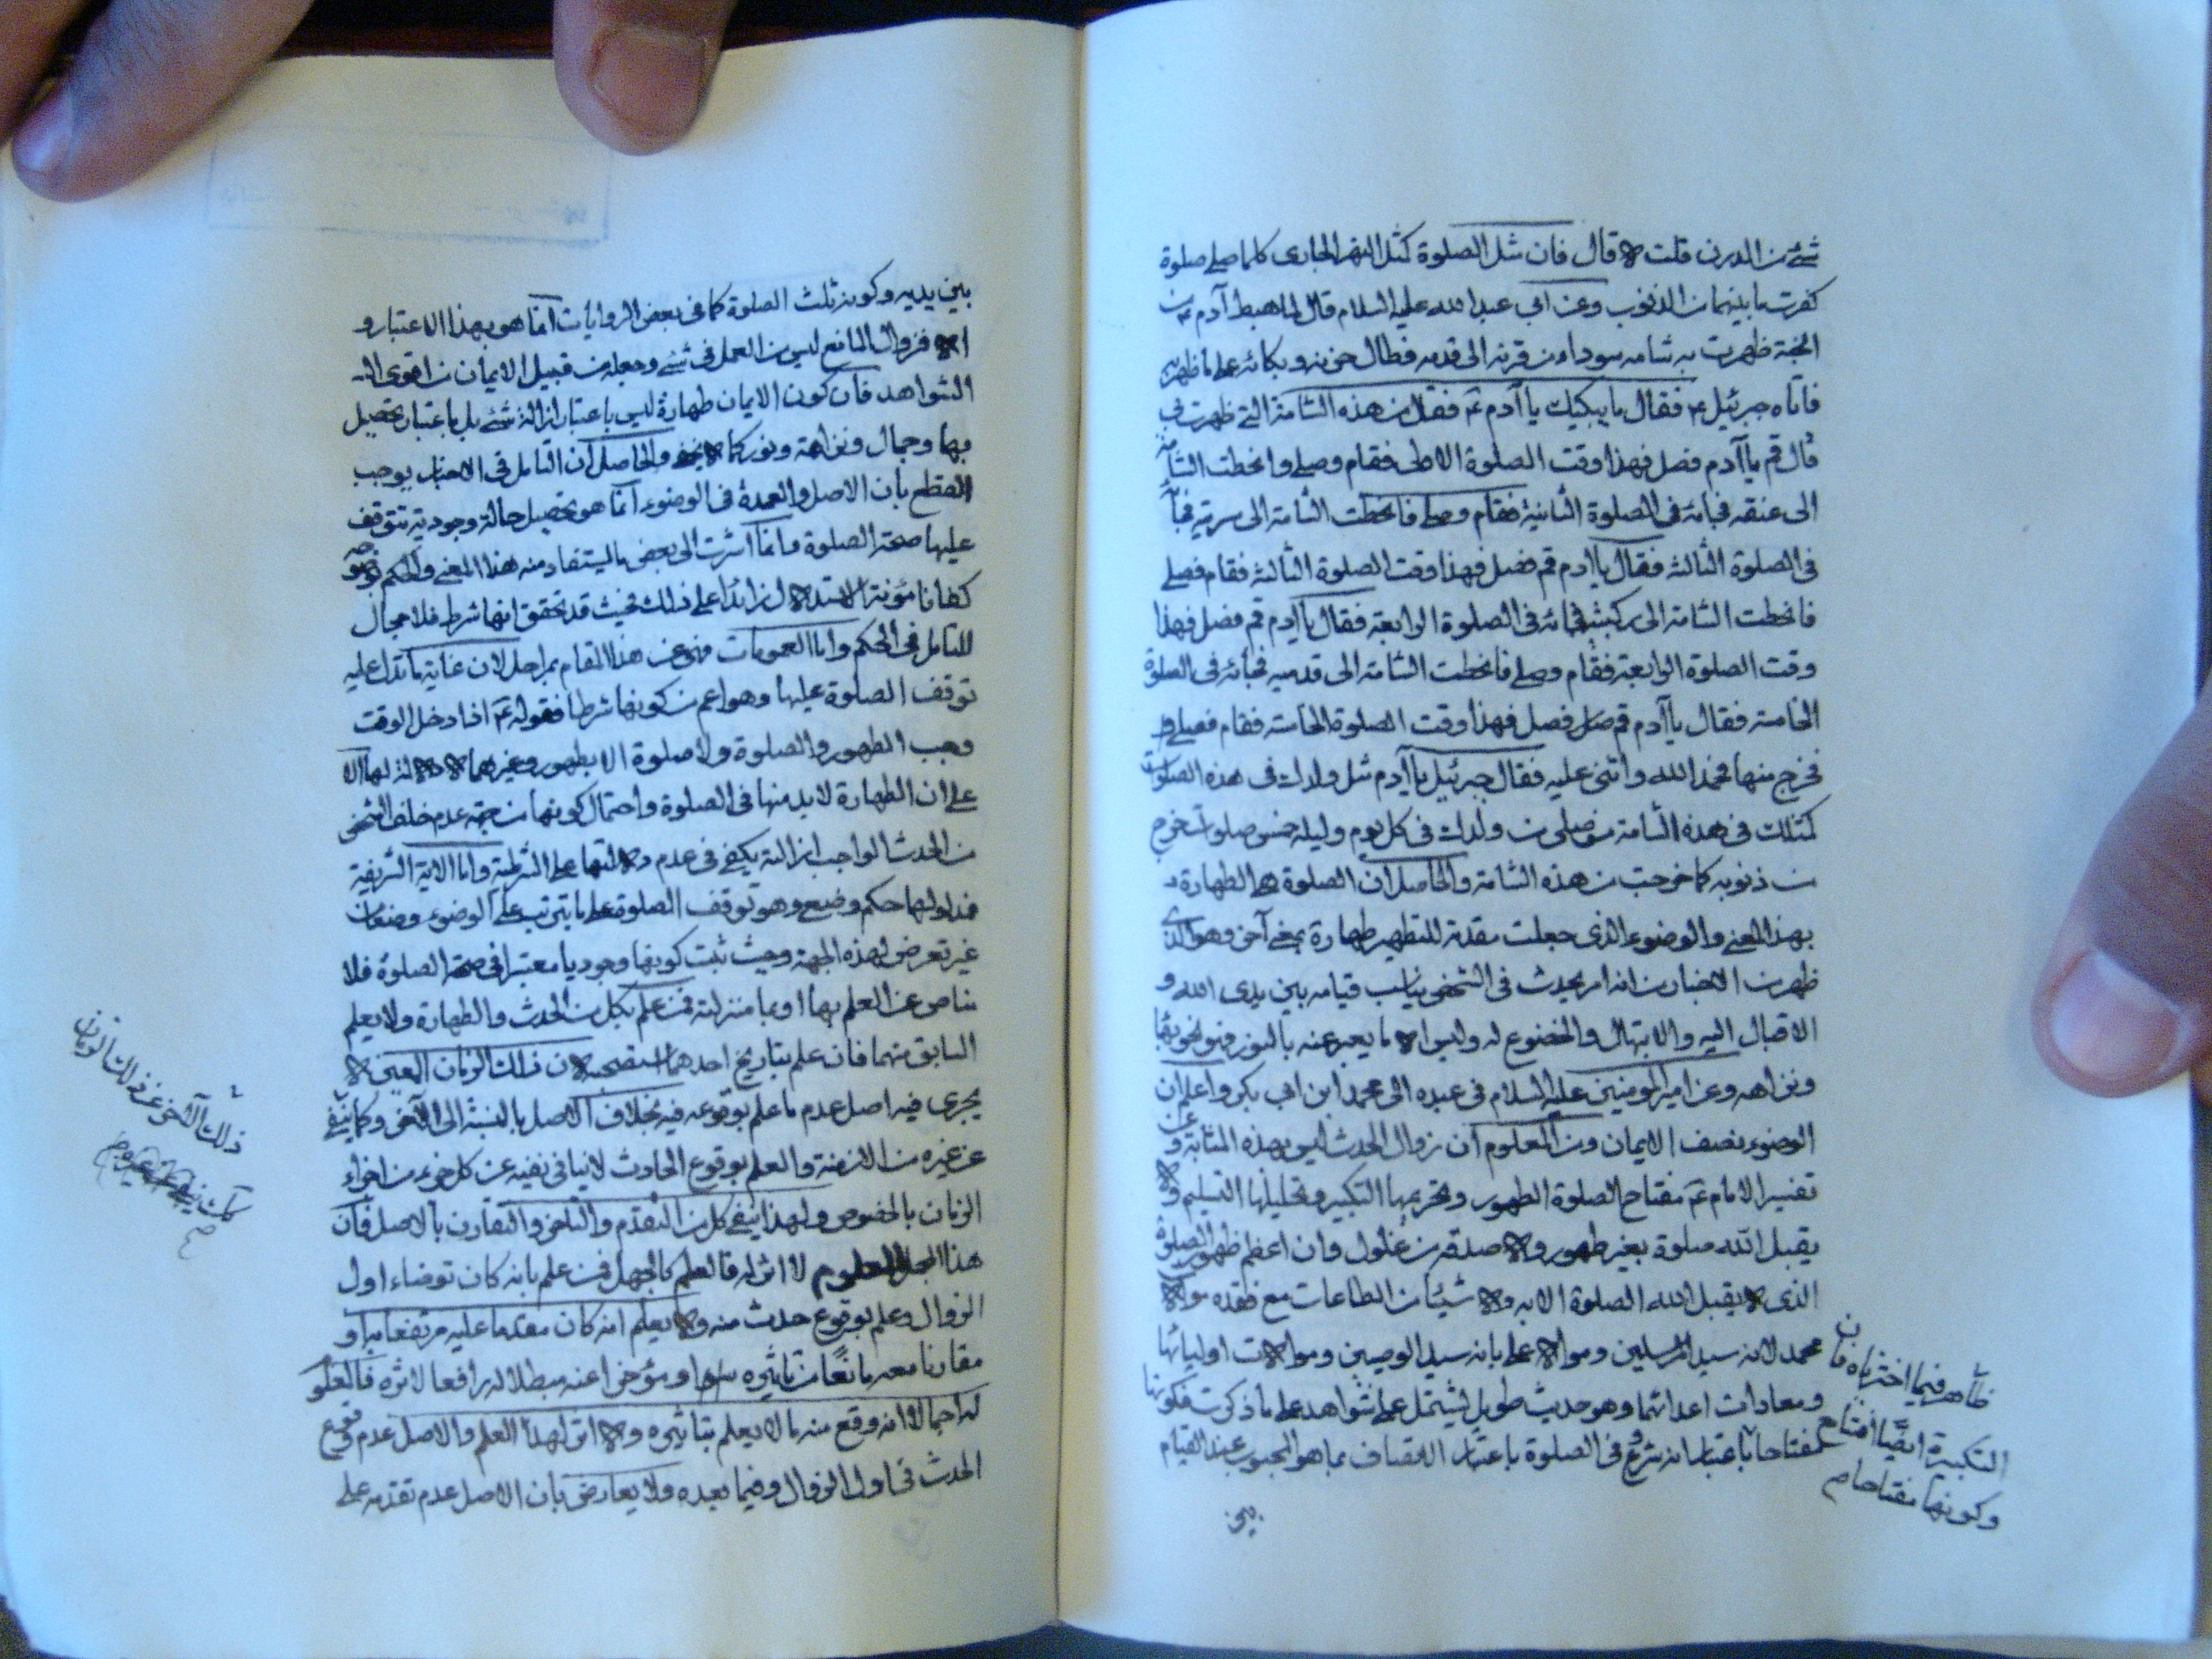 شئ من الدرن قلت لا قال فان مثل الصلوة كمثل النهر الجارى كلما صلى صلوة
كفرت ما بينهما من الذنوب وعن ابي عبد الله عليه السلام قال لما هبط آدم ع من
الجنة ظهرت به شامه سوداء من قرنه الى قدمه فطال حزنه وبكائه على ما ظهر به
فاتاه جبرئيل ع فقال ما يبكيك يا آدم ع فقال من هذه الشامة التى ظهرت بى
قال قم يا آدم فصل فهذا وقت الصلوة الاولى فقام وصلى وانحطت الشامة
الى عنقه فجائه فى الصلوة الثانية فقام وصلى فانحطت الشامة الى سرته فجائه
فى الصلوة الثالثة فقال يا آدم قم فصل فهذا وقت الصلوة الثالثه فقام فصلى
فانحطت الشامة الى ركبتيه فجائه فى الصلوة الرابعة فقال يا آدم قم فصل فهذا
وقت الصلوة الرابعة فقام وصلى فانحطت الشامة الى قدميه فجائه فى الصلوة
الخامسة فقال يا آدم قم فصل فهذا وقت الصلوة الخامسة فقام فصلى
فخرج منها فحمد الله واثنى عليه فقال جبرئيل يا آدم مثل ولدك فى هذه الصلوات
كمثلك فى هذه الشامة من صلى من ولدك فى كل يوم وليلة خمس صلوات خرج
من ذنوبه كما خرجت من هذه الشامة والحاصل ان الصلوة هى الطهارة
بهذا المعنى والوضوء الذى جعلت مقدمة للتطهير طهارة بمعنى آخر وهو الذى
ظهر من الاخبار من انه امر يحدث فى الشخص يناسب قيامه بين يدى الله و
الاقبال اليه والابتهال والخضوع له وليس الا ما يعبر عنه بالنور فهو نحو بهاء
ونزاهه وعن امير المومنين عليه السلام فى عهده الى محمد ابن ابى بكر واعلم ان
الوضوء نصف الايمان ومن المعلوم ان زوال الحدث ليس بهذه المثابة وعن
تفسير الامام ع مفتاح الصلوة الطهور وتحريمها التكبير وتحليلها التسليم ولا
يقبل الله صلوة بغير طهور ولا صدقه من غلول وان اعظم طهور الصلوة
الذى لا يقبل الله الصلوة الا به ولا شيئا من الطاعات مع فقده موالاة
محمد لانه سيد المرسلين وموالاة على بانه سيد الوصيين وموالات اوليائهما
ومعادات اعدائهما وهو حديث طويل يشتمل على شواهد على ما ذكرت فكونها
مفتاحا باعتبار انه شرع فى الصلوة باعتبار الاتصاف بما هو المحبوب عند القيام
ظاهر فيما اخترناه فان
التكبيرة ايضا افتتاح
وكونها مفتاحا م
بين
بين يديه وكونه ثلث الصلوة كما فى بعض الروايات انما هو بهذا الاعتبار و
الا فزوال المانع ليس من العمل فى شئ وجعله من قبيل الايمان من اقوى
الشواهد فان كون الايمان طهارة ليس باعتبار ازالة شئ بل باعتبار تحصيل
بهاء وجمال ونزاهة ونور كما لا يخفى والحاصل ان التامل فى الاخبار يوجب
القطع بان الاصل والعمدة فى الوضوء انما هو تحصيل حالة وجودية تتوقف
عليها صحة الصلوة وانما اشرت الى بعض ما يستفاد منه هذا المعنى والحكم بوجو
كفانا مؤنة الاستدلال زائدا على ذلك فحيث قد تحقق انها شرط فلا مجال
للتامل فى الحكم واما العمومات فهى عن هذا المقام بمراحل لان غاية ما تدل عليه
توقف الصلوة عليها وهو اعم من كونها شرطا فقوله ع اذا دخل الوقت
وجب الطهور والصلوة ولا صلوة الا بطهور وغيرهما لا دلالة لها الا
على ان الطهارة لا بد منها فى الصلوة واحتمال كونها من جهة عدم خلف الشخص
من الحدث الواجب ازالته يكفى فى عدم دلالتها على الشرطية واما الاية الشريفة
فمدلولها حكم وضعى وهو توقف الصلوة على ما يترتب على الوضوء وضعا من
غير تعرض لهذه الجهة وحيث ثبت كونها وجوديا معتبرا فى صحة الصلوة فلا
مناص عن العلم بها او بما منزلته فمن علم بكل من الحدث والطهارة ولا يعلم
السابق منهما فان علم بتاريخ احدهما استصحبه لان ذلك الزمان المعين لا
يجرى فيه اصل عدم ما علم بوقوعه فيه بخلاف الاصل بالنسبة الى الآخر وكما ينفى
عن غيره من الازمنة والعلم بوقوع الحادث لا ينافى نفيه عن كل جزء من اجزاء
الزمان بالخصوص ولهذا ينفى كل من التقدم والتاخر والتقارن بالاصل فان
هذا المعلوم لا اثر له فالعلم كالجهل فمن علم بانه كان توضاء اول
الزوال وعلم بوقوع حدث منه ولا يعلم انه كان مقدما عليه مرتفعا به او
مقارنا معه مانعا من تاثيره او مؤخرا عنه مبطلا له رافعا لاثره فالمعلوم
له اجمالا انه وقع منه ما لا يعلم بتاثيره ولا اثر لهذا العلم والاصل عدم وقوع
الحدث فى اول الزوال وفيما بعده ولا يعارض بان الاصل عدم تقدمه على
ذلك الآخر عن ذلك الزمان